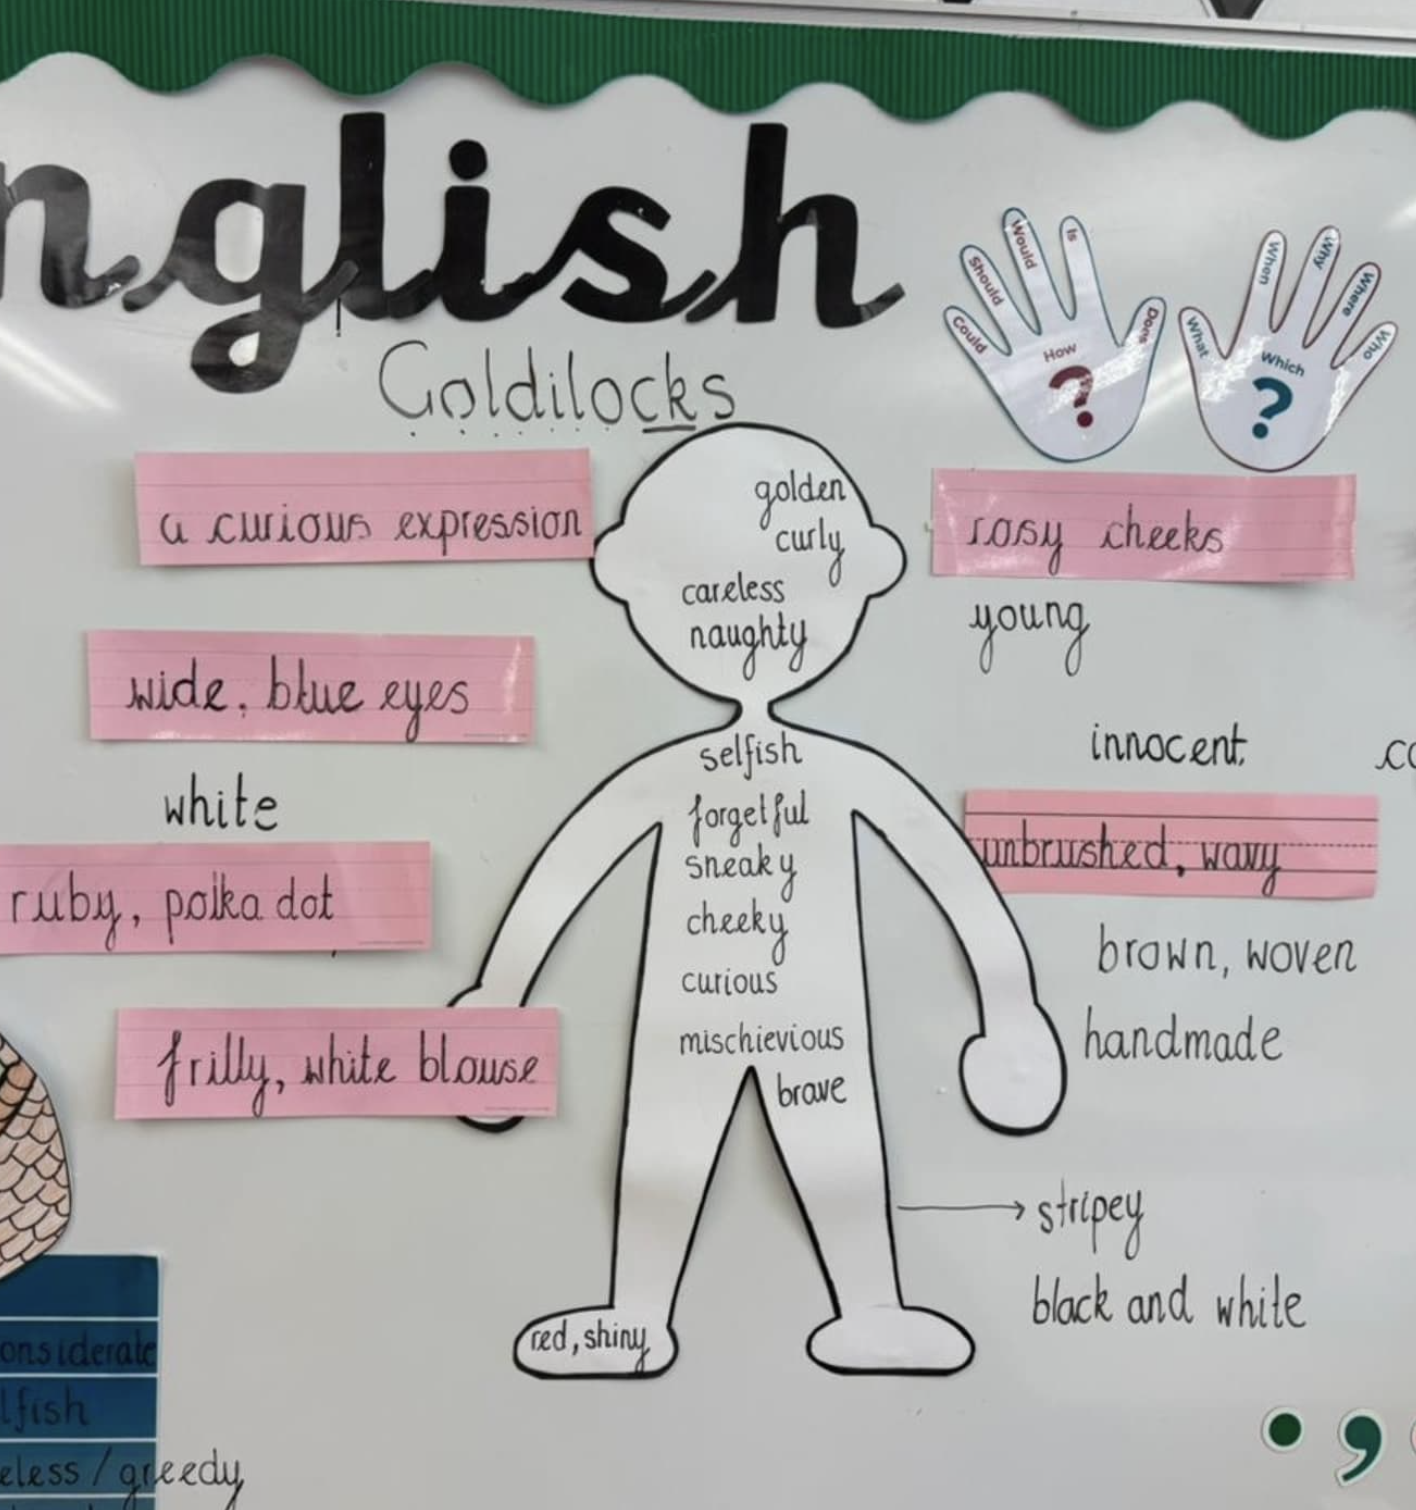 nglish
Goldilocks
Could
Should
Would
Is
Does
How
?
What
When
Why
Where
Who
Which
?
a curious expression
golden
curly
careless
naughty
rosy cheeks
young
wide, blue eyes
white
ruby, polka dot
frilly, white blouse
selfish
forgetful
sneaky
cheeky
curious
mischievious
brave
innocent,
co
unbrushed, wavy
brown, woven
handmade
stripey
black and white
red, shiny
onsiderate
lfish
eless / greedy
. ,